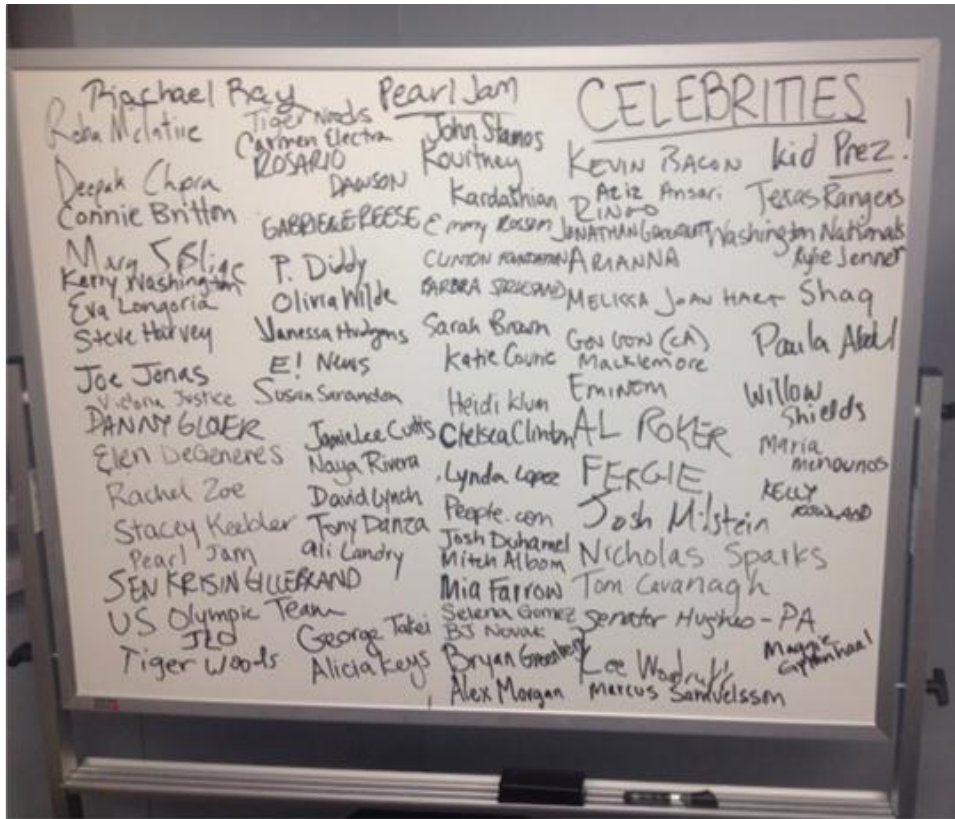 Rachael Ray
Reba McIntire
Deepak Chpra
Connie Britton
Mary J Blige
Kerry Washington
Eva Longoria
Steve Harvey
Joe Jonas
Victoria Justice
DANNY GLOVER
Ellen DeGeneres
Rachel Zoe
Stacey Keebler
Pearl Jam
SEN KRISIN GILLEBRAND
US Olympic Team
JLO
Tiger Woods
Tiger Woods
Carmen Electra
ROSARIO
DAWSON
GABRIELLE REESE
P. Diddy
Olivia Wilde
Vanessa Hudgens
E! News
Susan Sarandon
Jamie Lee Curtis
Naya Rivera
David Lynch
Tony Danza
Ali Landry
George Takei
Alicia Keys
Pearl Jam
John Stamos
Kourtney
Kardashian
Emmy Rossum
CLINTON FOUNDATION
BARBRA STREISAND
Sarah Brown
Katie Couric
Heidi Klum
Chelsea Clinton
Lynda Lopez
People.com
Josh Duhamel
Mitch Albom
Mia Farrow
Selena Gomez
BJ Novak
Bryan Greenberg
Alex Morgan
CELEBRITIES!
KEVIN BACON
Aziz Ansari
RINGO
JONATHAN
ARIANNA
MELISSA JOAN HART
GOV (CA)
Macklemore
Eminem
AL ROKER
FERGIE
Josh Milstein
Nicholas Sparks
Tom Cavanagh
Senator Hughes - PA
Lee Woodruff
Marcus Samuelsson
Kid Prez.
Texas Rangers
Washington Nationals
Kylie Jenner
Shaq
Paula Abdul
Willow
Shields
Maria
menounos
KELLY
ROWLAND
Maggie
Gyllenhaal